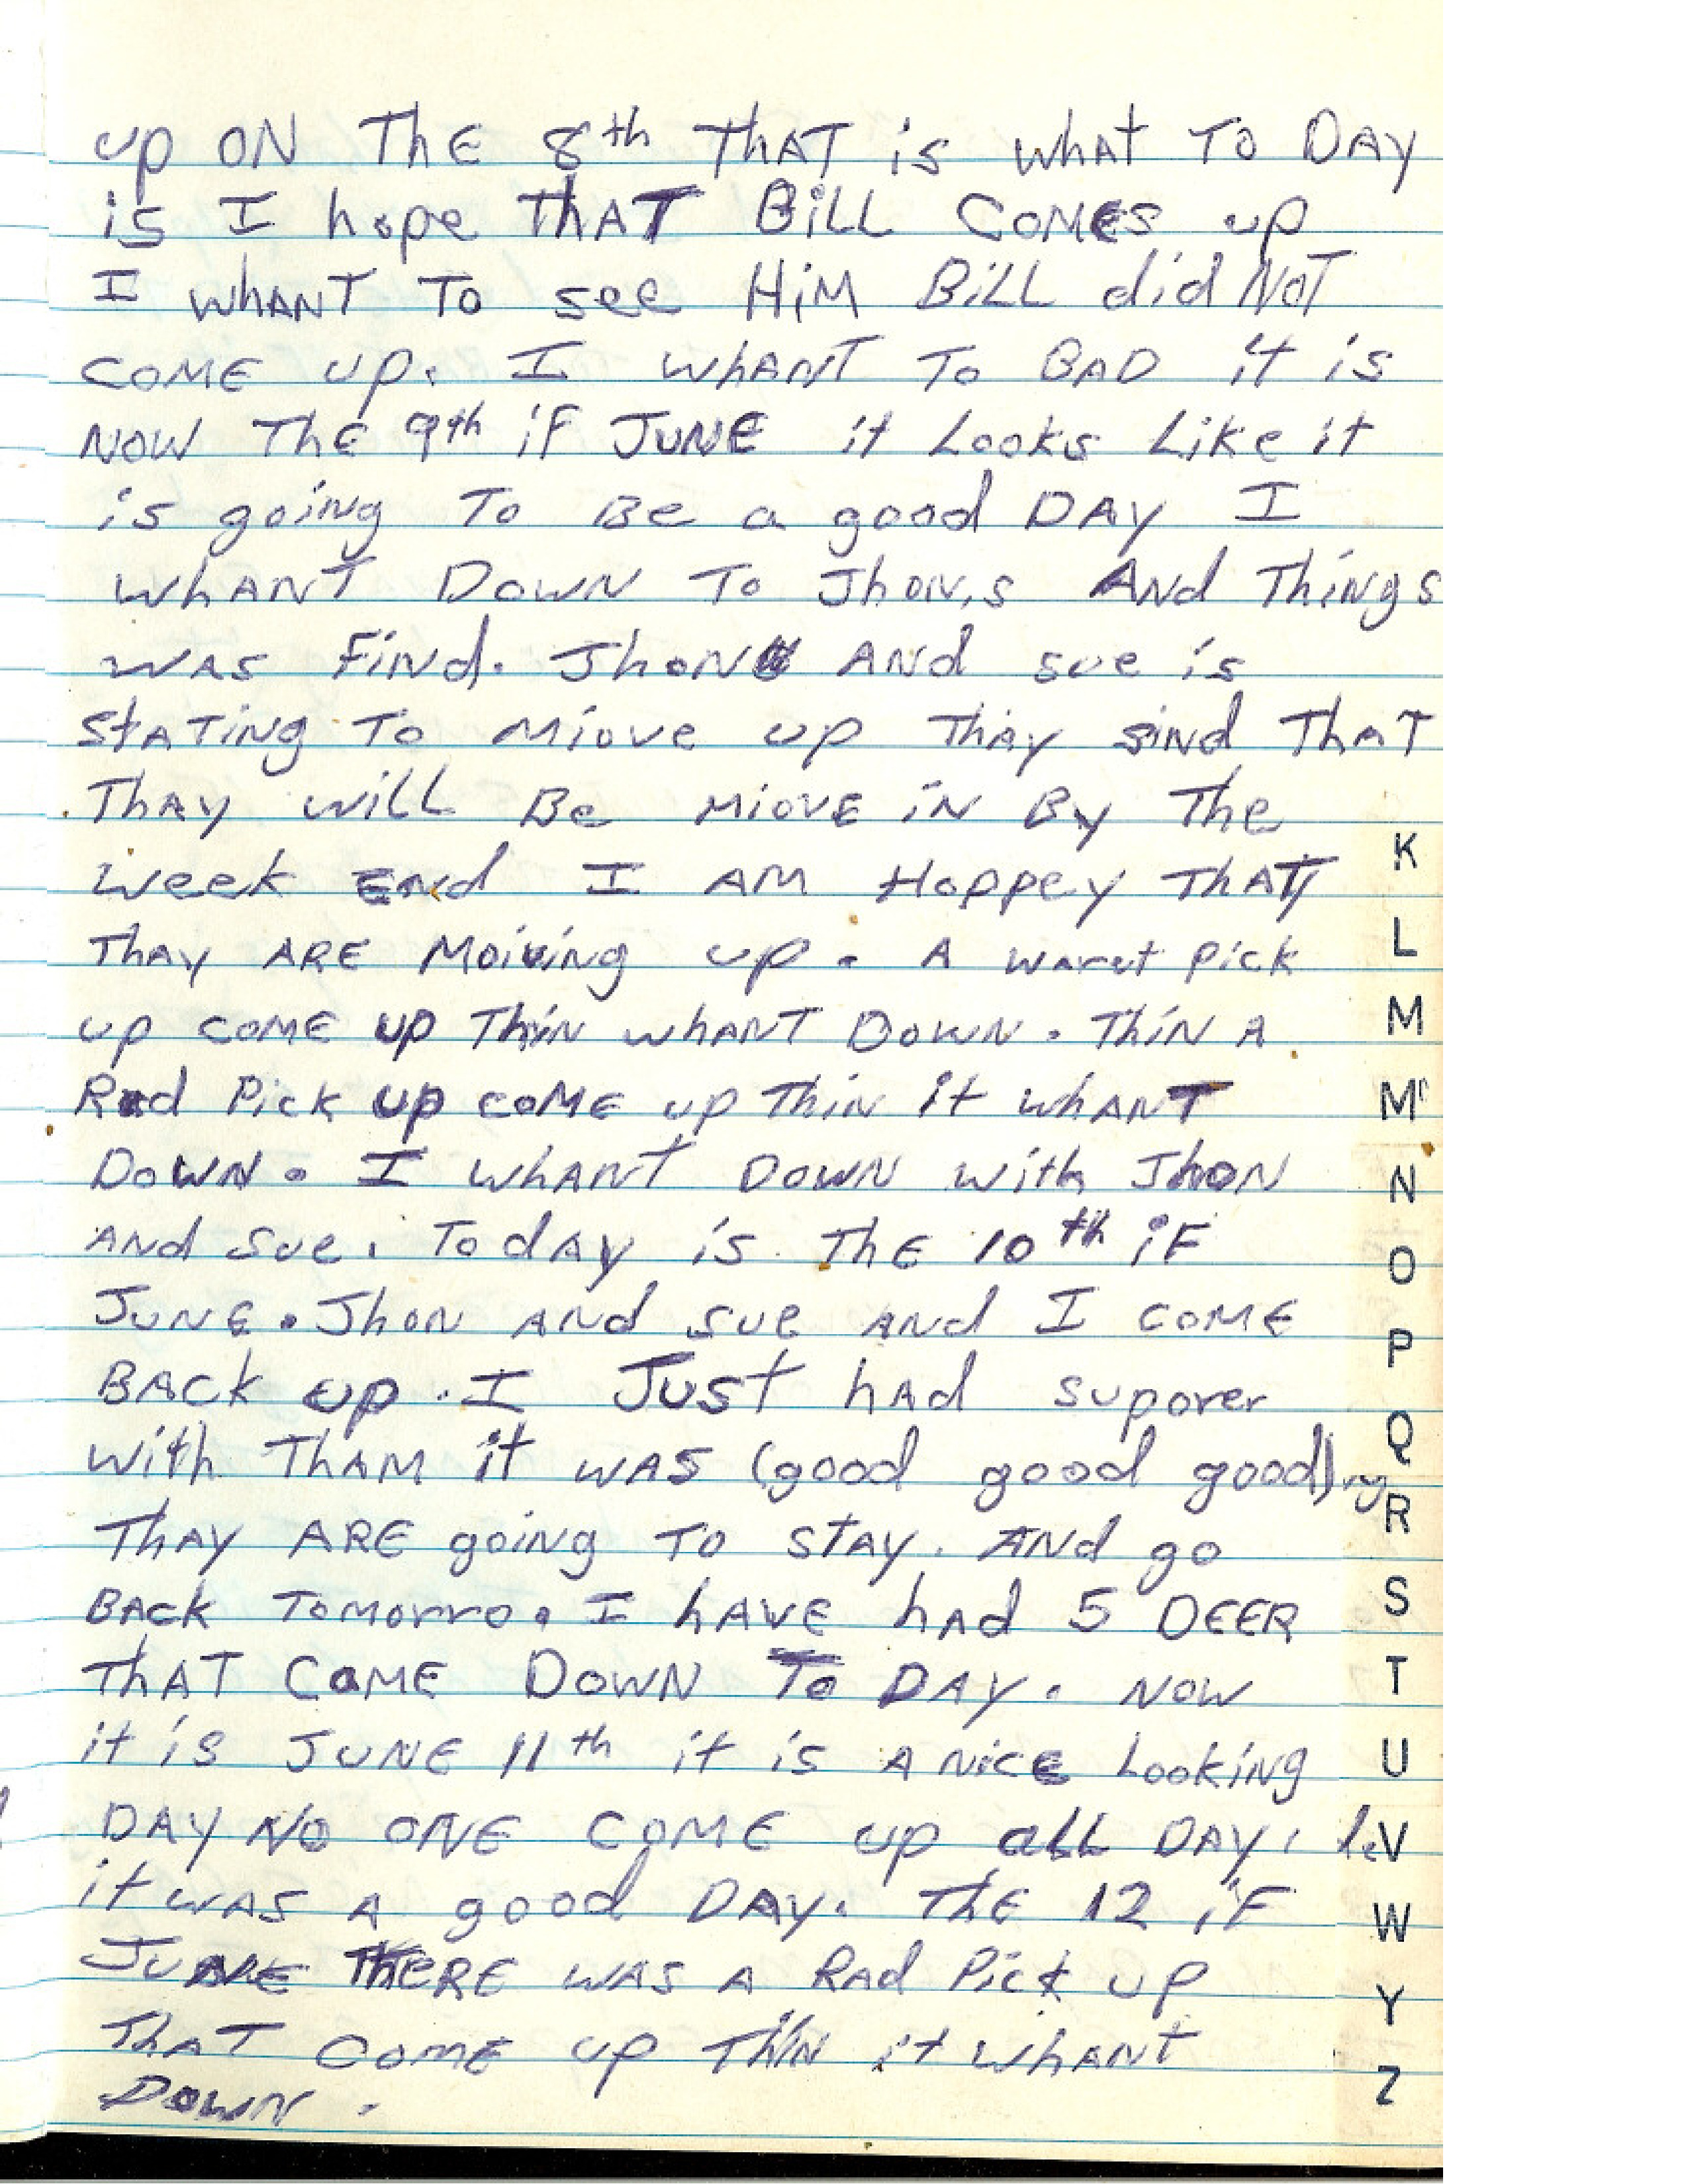 up ON ThE 8th ThAT is whAt To DAY
is I hope ThAT BiLL COMES up
I whANT To see HiM BiLL did NoT
COME up. I whANT To BAD it is
NOW ThE 9th iF JUNE it Looks Like it
is going To Be a good DAY I
whANT DOWN To Jhon,s ANd Things
WAS FiNd. JhoN ANd sue is
StATiNg To Miove up ThAy sind ThAT
ThAy will Be MiovE iN By The
Week End I AM Hoppey ThAT
ThAy ARE Moiving up. A pick
up COME up ThiN whANT DOWN. ThiN A
Rad Pick up COME up ThiN it whANT
DOWN. I whANT DOWN with JhoN
ANd Sue. TodAy is ThE 10th iF
JUNE. JhoN ANd sue ANd I COME
BACK up. I JUSt hAd suporer
With ThAM it WAS (good good good)
ThAy ARE going To StAY. ANd go
BACK Tomorro. I hAVE hAd 5 DEER
ThAT CaME DOWN To DAY. NOW
it is JUNE 11th it is A NiCE Looking
DAY NO ONE COME up aLL DAY.
it WAS A good DAY. ThE 12 iF
JUNE ThERE WAS A RAd Pick UP
ThAT COME up ThiN it whANT
DOWN.
K
L
M
Mc
N
O
P
Q
R
S
T
U
V
W
Y
Z